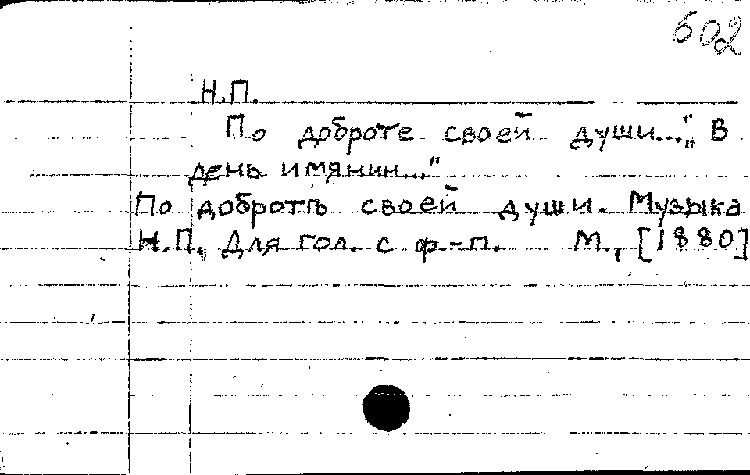 602
Н.П.
По доброте своей души...„ В
день имянин..."
По добротѣ своей души. Музыка
Н.П. Для гол. с ф.-п. М., [1880]